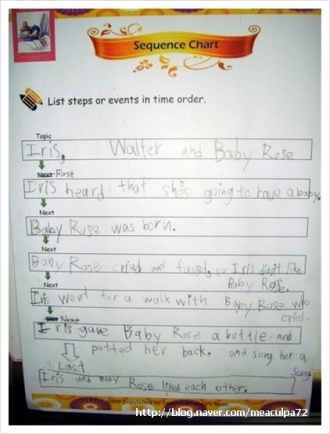 Sequence Chart
List steps or events in time order.
Topic
Iris, Walter and Baby Rose
Next First
Iris heard that she's going to have a baby.
Next
Baby Rose was born.
Next
Baby Rose cried and fussed, so Iris didn't like
Baby Rose.
Next
Iris went for a walk with Baby Rose who
cried.
Next
Iris gave Baby Rose a bottle and
patted her back. and sang her a
song.
Last
Iris and Baby Rose liked each other.
http://blog.naver.com/meaculpa72